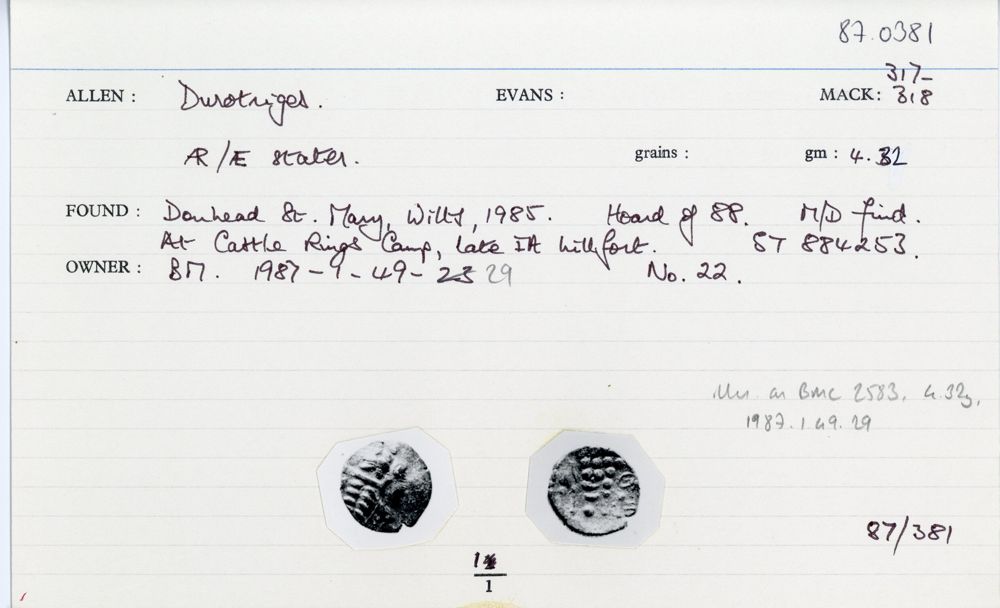 87.0381
317-
ALLEN : Durotriges. EVANS : MACK: 318
AR/Æ stater. grains : gm : 4.32
FOUND : Donhead St. Mary, Wilts, 1985. Hoard of 88. M/D find.
At Castle Rings Camp, late IA hillfort. ST 884253.
OWNER : BM. 1987-9-49-23 29 No. 22.
Illus. as BMC 2583. 4.32g,
1987.1.49.29
87/381
1
1